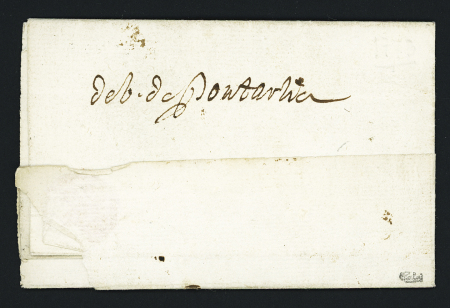 deb. de Pontarlier